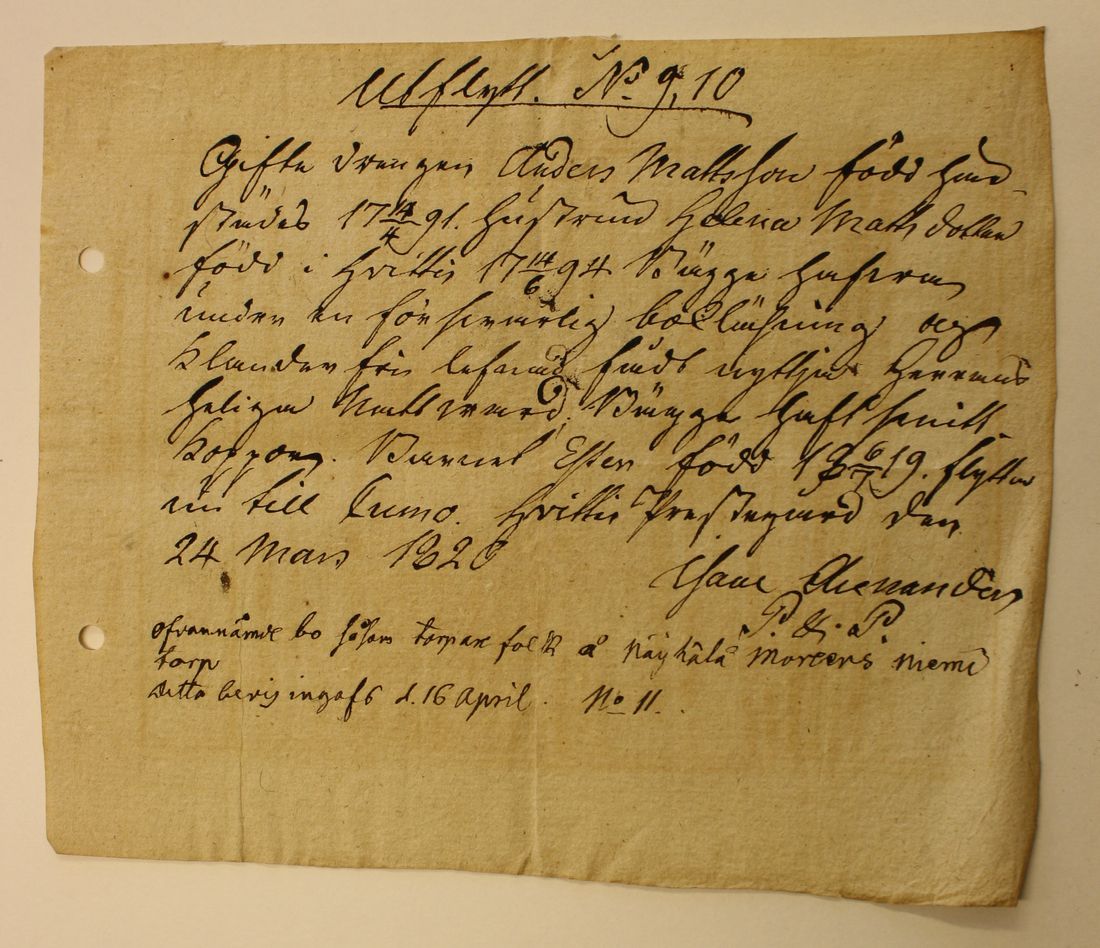 Utflytt. No 9, 10
Gifte drengen Anders Mattsson född här-
städes 17 14/4 91. Hustrun Helena Matts dotter
född i Hvittis 17 14/6 94 Bägge hafva
under en försvarlig bokläsning och
klander fri lefnad fådt nyttja Herrans
Heliga Nattward. Bägge haft
Koppor. Barnet Ester född 18 6/7 19. flyttar
nu till Cumo. Hvittis Prestegård den
24 Mars 1820
Isaac Alenander
P. & P.
ofvannämde bo såsom torpare folk å Näyhälä Mortens niemi
torp
Detta bevis ingafs d. 16 April. No 11.